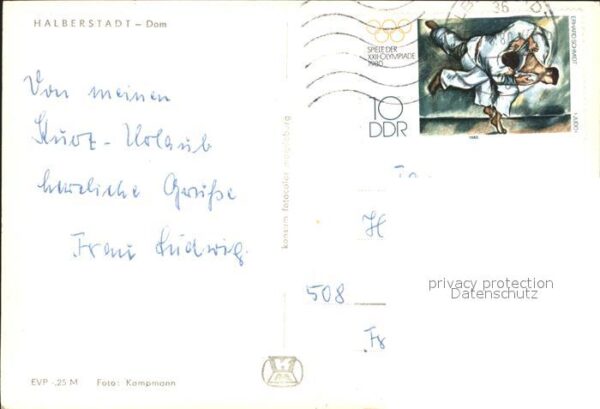 HALBERSTADT – Dom
Von meinen
Kurz-Urlaub
herzliche Grüße
Frau Ludwig.
EVP -,25 M Foto: Kampmann
konsum fotocolor magdeburg
36
SPIELE DER
XXII. OLYMPIADE
1980
10
DDR
ERHARD SCHMIDT
1980
H
508
Fr
privacy protection
Datenschutz